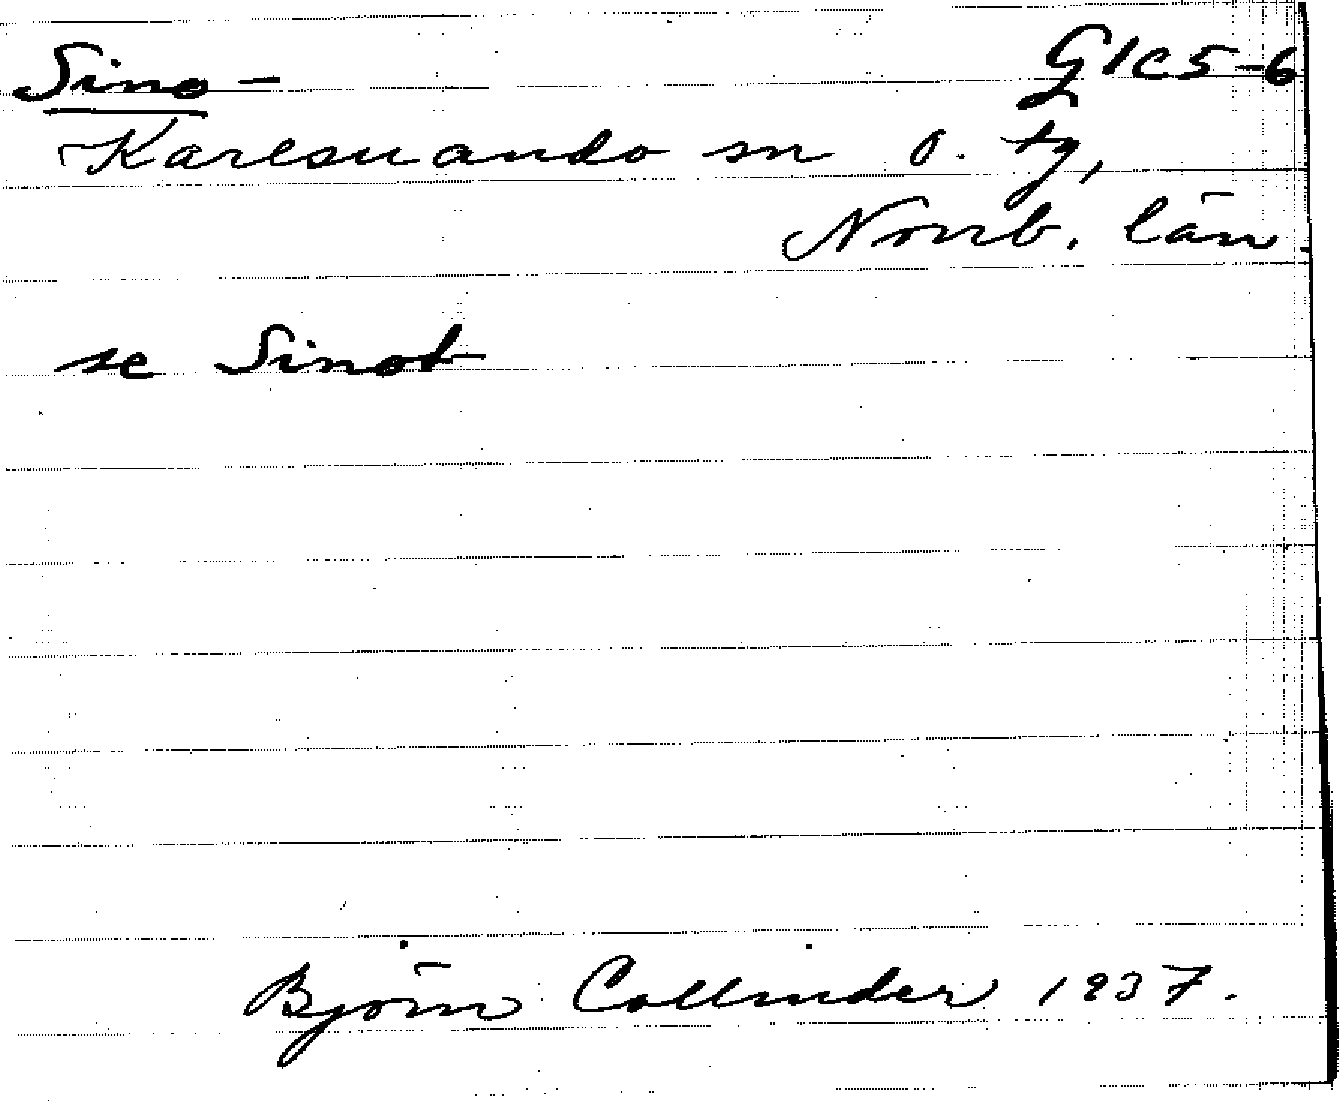 Sino- G1c5-6
Karesuando sn o. tg,
Norrb. län
se Sinot-
Björn Collinder 1937.